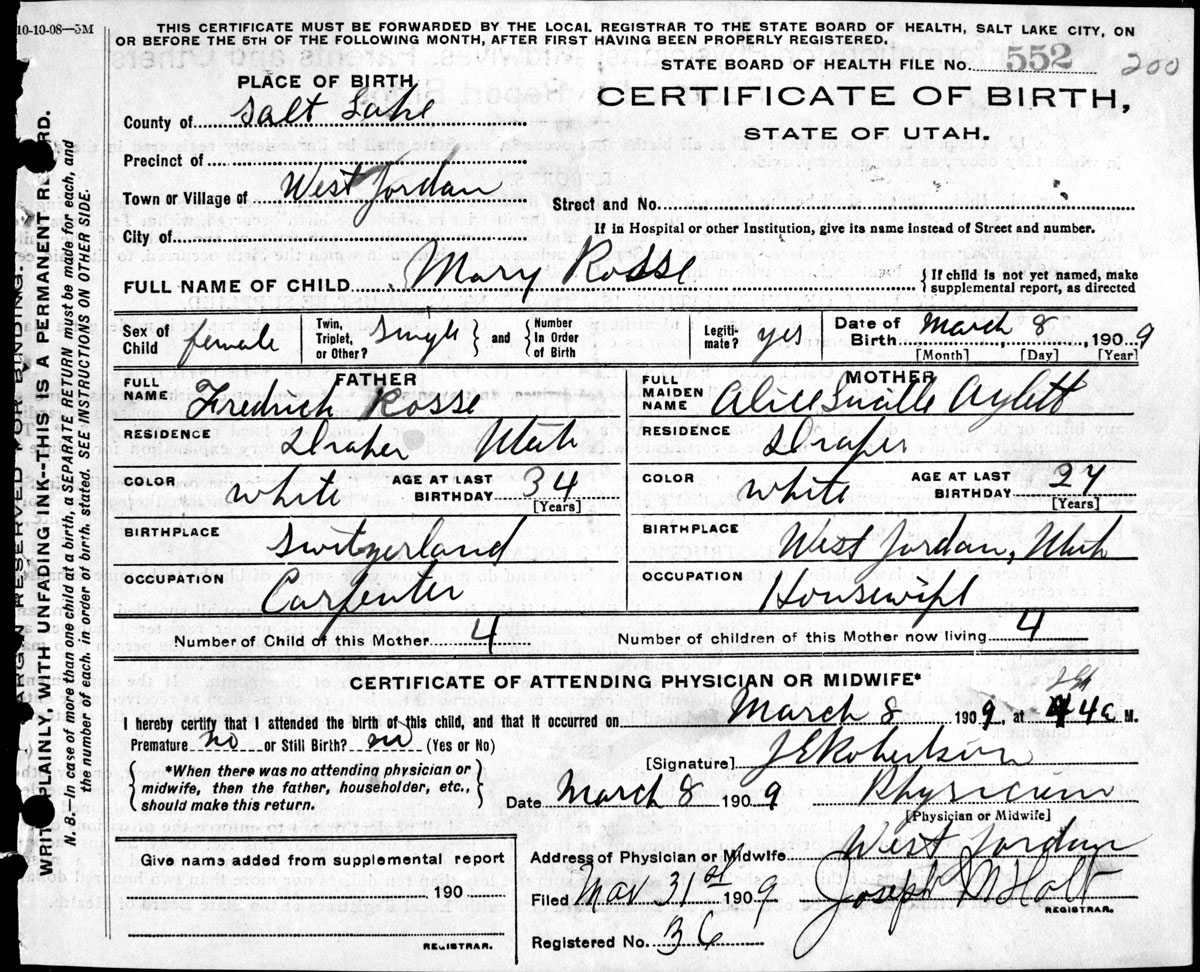 10-10-08—5M
THIS CERTIFICATE MUST BE FORWARDED BY THE LOCAL REGISTRAR TO THE STATE BOARD OF HEALTH, SALT LAKE CITY, ON
OR BEFORE THE 5TH OF THE FOLLOWING MONTH, AFTER FIRST HAVING BEEN PROPERLY REGISTERED.
STATE BOARD OF HEALTH FILE No. 552 200
PLACE OF BIRTH
CERTIFICATE OF BIRTH,
STATE OF UTAH.
County of Salt Lake
Precinct of
Town or Village of West Jordan
Street and No.
City of
If in Hospital or other Institution, give its name instead of Street and number.
FULL NAME OF CHILD Mary Rosse
If child is not yet named, make
supplemental report, as directed
Sex of Child female
Twin, Triplet, or Other? Single and Number In Order of Birth
Legiti-mate? yes
Date of Birth March 8, 1909
[Month] [Day] [Year]
FATHER
FULL NAME Fredrich Rosse
RESIDENCE Draper Utah
COLOR white AGE AT LAST BIRTHDAY 34
[Years]
BIRTHPLACE Switzerland
OCCUPATION Carpenter
MOTHER
FULL MAIDEN NAME Alice Lucille Aylett
RESIDENCE Draper
COLOR white AGE AT LAST BIRTHDAY 27
[Years]
BIRTHPLACE West Jordan, Utah
OCCUPATION Housewife
Number of Child of this Mother 4 Number of children of this Mother now living 4
CERTIFICATE OF ATTENDING PHYSICIAN OR MIDWIFE*
I hereby certify that I attended the birth of this child, and that it occurred on March 8 1909, at 4 a M.
Premature no or Still Birth? no (Yes or No)
[Signature] J E Robertson
*When there was no attending physician or
midwife, then the father, householder, etc.,
should make this return.
Date March 8 1909 Physician
[Physician or Midwife]
Give name added from supplemental report
190
REGISTRAR.
Address of Physician or Midwife West Jordan
Filed Mar 31st 1909 Joseph A Holt
REGISTRAR.
Registered No. 36
MARGIN RESERVED FOR BINDING.
WRITE PLAINLY WITH UNFADING INK--THIS IS A PERMANENT RECORD.
N. B. In case of more than one child at a birth, a SEPARATE RETURN must be made for each, and
the number of each, in order of birth, stated. SEE INSTRUCTIONS ON OTHER SIDE.